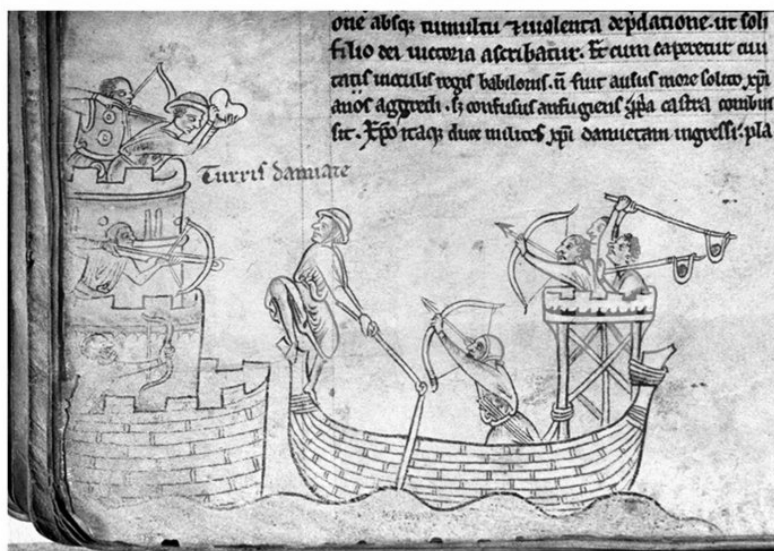 one absq; tumultu ⁊ uiolenta dep̄datione. ut soli
filio dei uictoria ascribatur. Et cum caperetur ciui
tas in oculis regis babilonis. n̄ fuit ausus more solito xp̄i
anos aggredi. s; confusus aufugiens castra combus
sit. Xp̄o itaq; duce milites xp̄i damietam ingressi. pla
Turris damiate